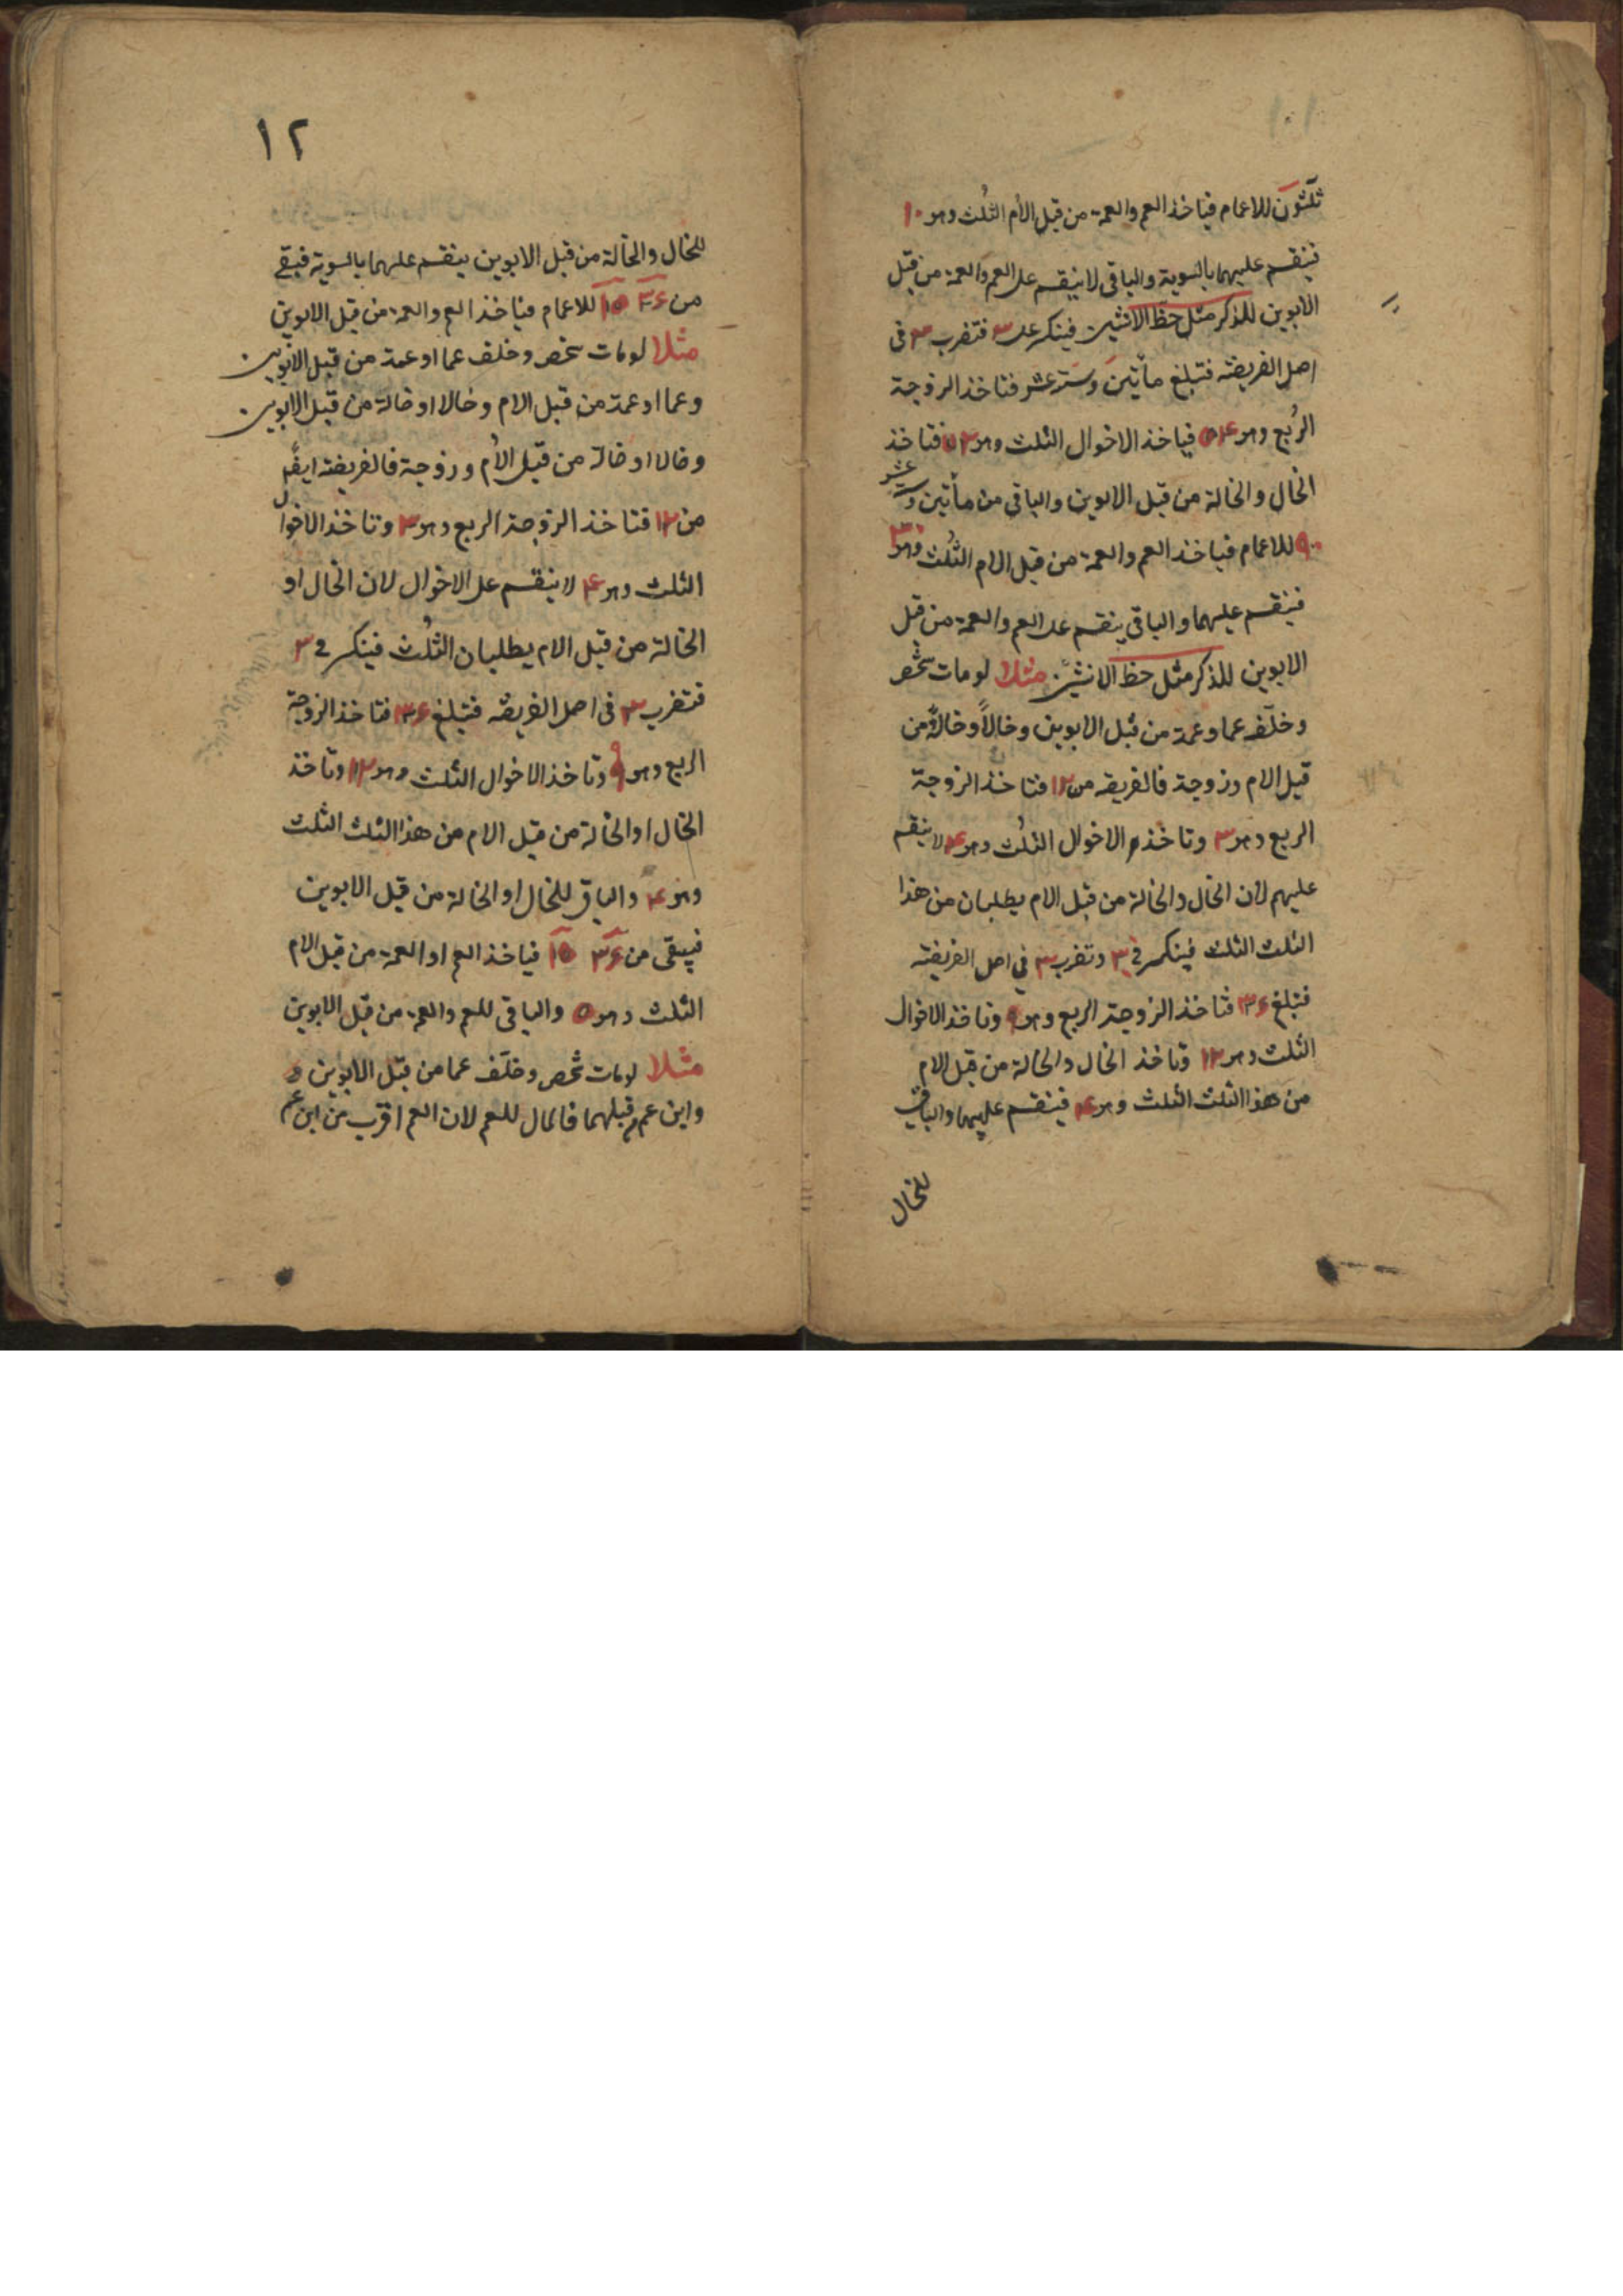 ثلثون للاعمام فياخذ العم والعمة من قبل الأم الثلث وهو ١٠
فينقسم عليهما بالسوية والباقى لا ينقسم على العم والعمة من قبل
الابوين للذكر مثل حظ الانثيين فينكسر على ٣ فتضرب ٣ فى
اصل الفريضة فتبلغ مأتين وستة عشر فتاخذ الزوجة
الربع وهو ۵۴ فياخذ الاخوال الثلث وهو ٧٢ فتاخذ
الخال والخالة من قبل الابوين والباقى من مأتين و ستة عشر
٩٠ للاعمام فياخذ العم والعمة من قبل الام الثلث وهو ٣٠
فينقسم عليهما والباقى ينقسم على العم والعمة من قبل
الابوين للذكر مثل حظ الانثيين مثلا لو مات شخص
وخلّف عما وعمة من قبل الابوين وخالاً وخالةً من
قبل الام وزوجة فالفريضة من ١٢ فتاخذ الزوجة
الربع وهو ٣ وتاخذ الاخوال الثلث وهو ۴ لا ينقسم
عليهم لان الخال والخالة من قبل الام يطلبان من هذا
الثلث الثلث فينكسر فى ٣ وتضرب ٣ فى اصل الفريضة
فتبلغ ٣۶ فتاخذ الزوجة الربع وهو ٩ وتاخذ الاخوال
الثلث وهو ١٢ وتاخذ الخال والخالة من قبل الام
من هذا الثلث الثلث وهو ۴ فينقسم عليهما والباقى
للخال
١٢
للخال والخالة من قبل الابوين ينقسم عليهما بالسوية فبقى
من ٣۶ ١۵ للاعمام فياخذ العم والعمة من قبل الابوين
مثلا لو مات شخص وخلف عما او عمة من قبل الابوين
وعما او عمة من قبل الام وخالا او خالة من قبل الابوين
وخالا او خالة من قبل الأم وزوجة فالفريضة ايضًا
من ١٢ فتاخذ الزوجة الربع وهو ٣ وتاخذ الاخوال
الثلث وهو ۴ لا ينقسم على الاخوال لان الخال او
الخالة من قبل الام يطلبان الثلث فينكسر فى ٣
فتضرب ٣ فى اصل الفريضة فتبلغ ٣۶ فتاخذ الزوجة
الربع وهو ٩ وتاخذ الاخوال الثلث وهو ١٢ وتاخذ
الخال او الخالة من قبل الام من هذا الثلث الثلث
وهو ۴ والباقى للخال او الخالة من قبل الابوين
فيبقى من ٣۶ ١۵ فياخذ العم او العمة من قبل الام
الثلث وهو ۵ والباقى للعم والعمة من قبل الابوين
مثلا لو مات شخص وخلّف عما من قبل الابوين و
وابن عم من قبلهما فالمال للعم لان العم اقرب من ابن عم